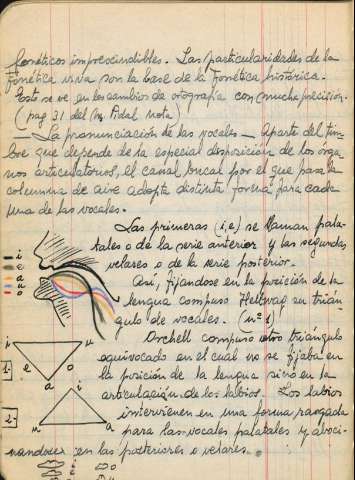 fonéticos imprescindibles. Las particularidades de la
Fonética viva son la base de la Fonética histórica.
Esto se ve en los cambios de ortografía con mucha precisión.
(pag 31 del M. Pidal nota)
— La pronunciación de las vocales — Aparte del tim-
bre que depende de la especial disposición de los órga-
nos articulatorios, el canal bucal por el que pasa la
columna de aire adopta distinta forma para cada
una de las vocales.
Las primeras (i,e) se llaman pala-
tales o de la serie anterior y las segundas
velares o de la serie posterior.
Así, fijándose en la posición de la
lengua compuso Hellwag su trián-
gulo de vocales. (nº 1)
Orchell compuso otro triángulo
equivocado en el cual no se fijaba en
la posición de la lengua sino en la
articulación de los labios. Los labios
intervienen en una forma rasgada
para las vocales palatales y aboci-
nandose en las posteriores o velares.
i
e
a
o
u
1-
i u
e o
a
2-
i
u a